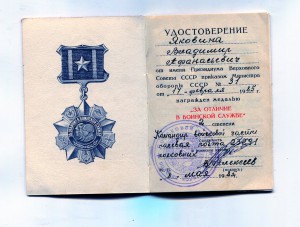 УДОСТОВЕРЕНИЕ
Яковина
Владимир
Афанасьевич
от имени Президиума Верховного
Совета СССР приказом Министра
обороны СССР № 31
от "17" февраля 1984г.
награжден медалью
"ЗА ОТЛИЧИЕ
В ВОИНСКОЙ СЛУЖБЕ"
2 степени
Командир войсковой части
полевая почта
полковник
мая